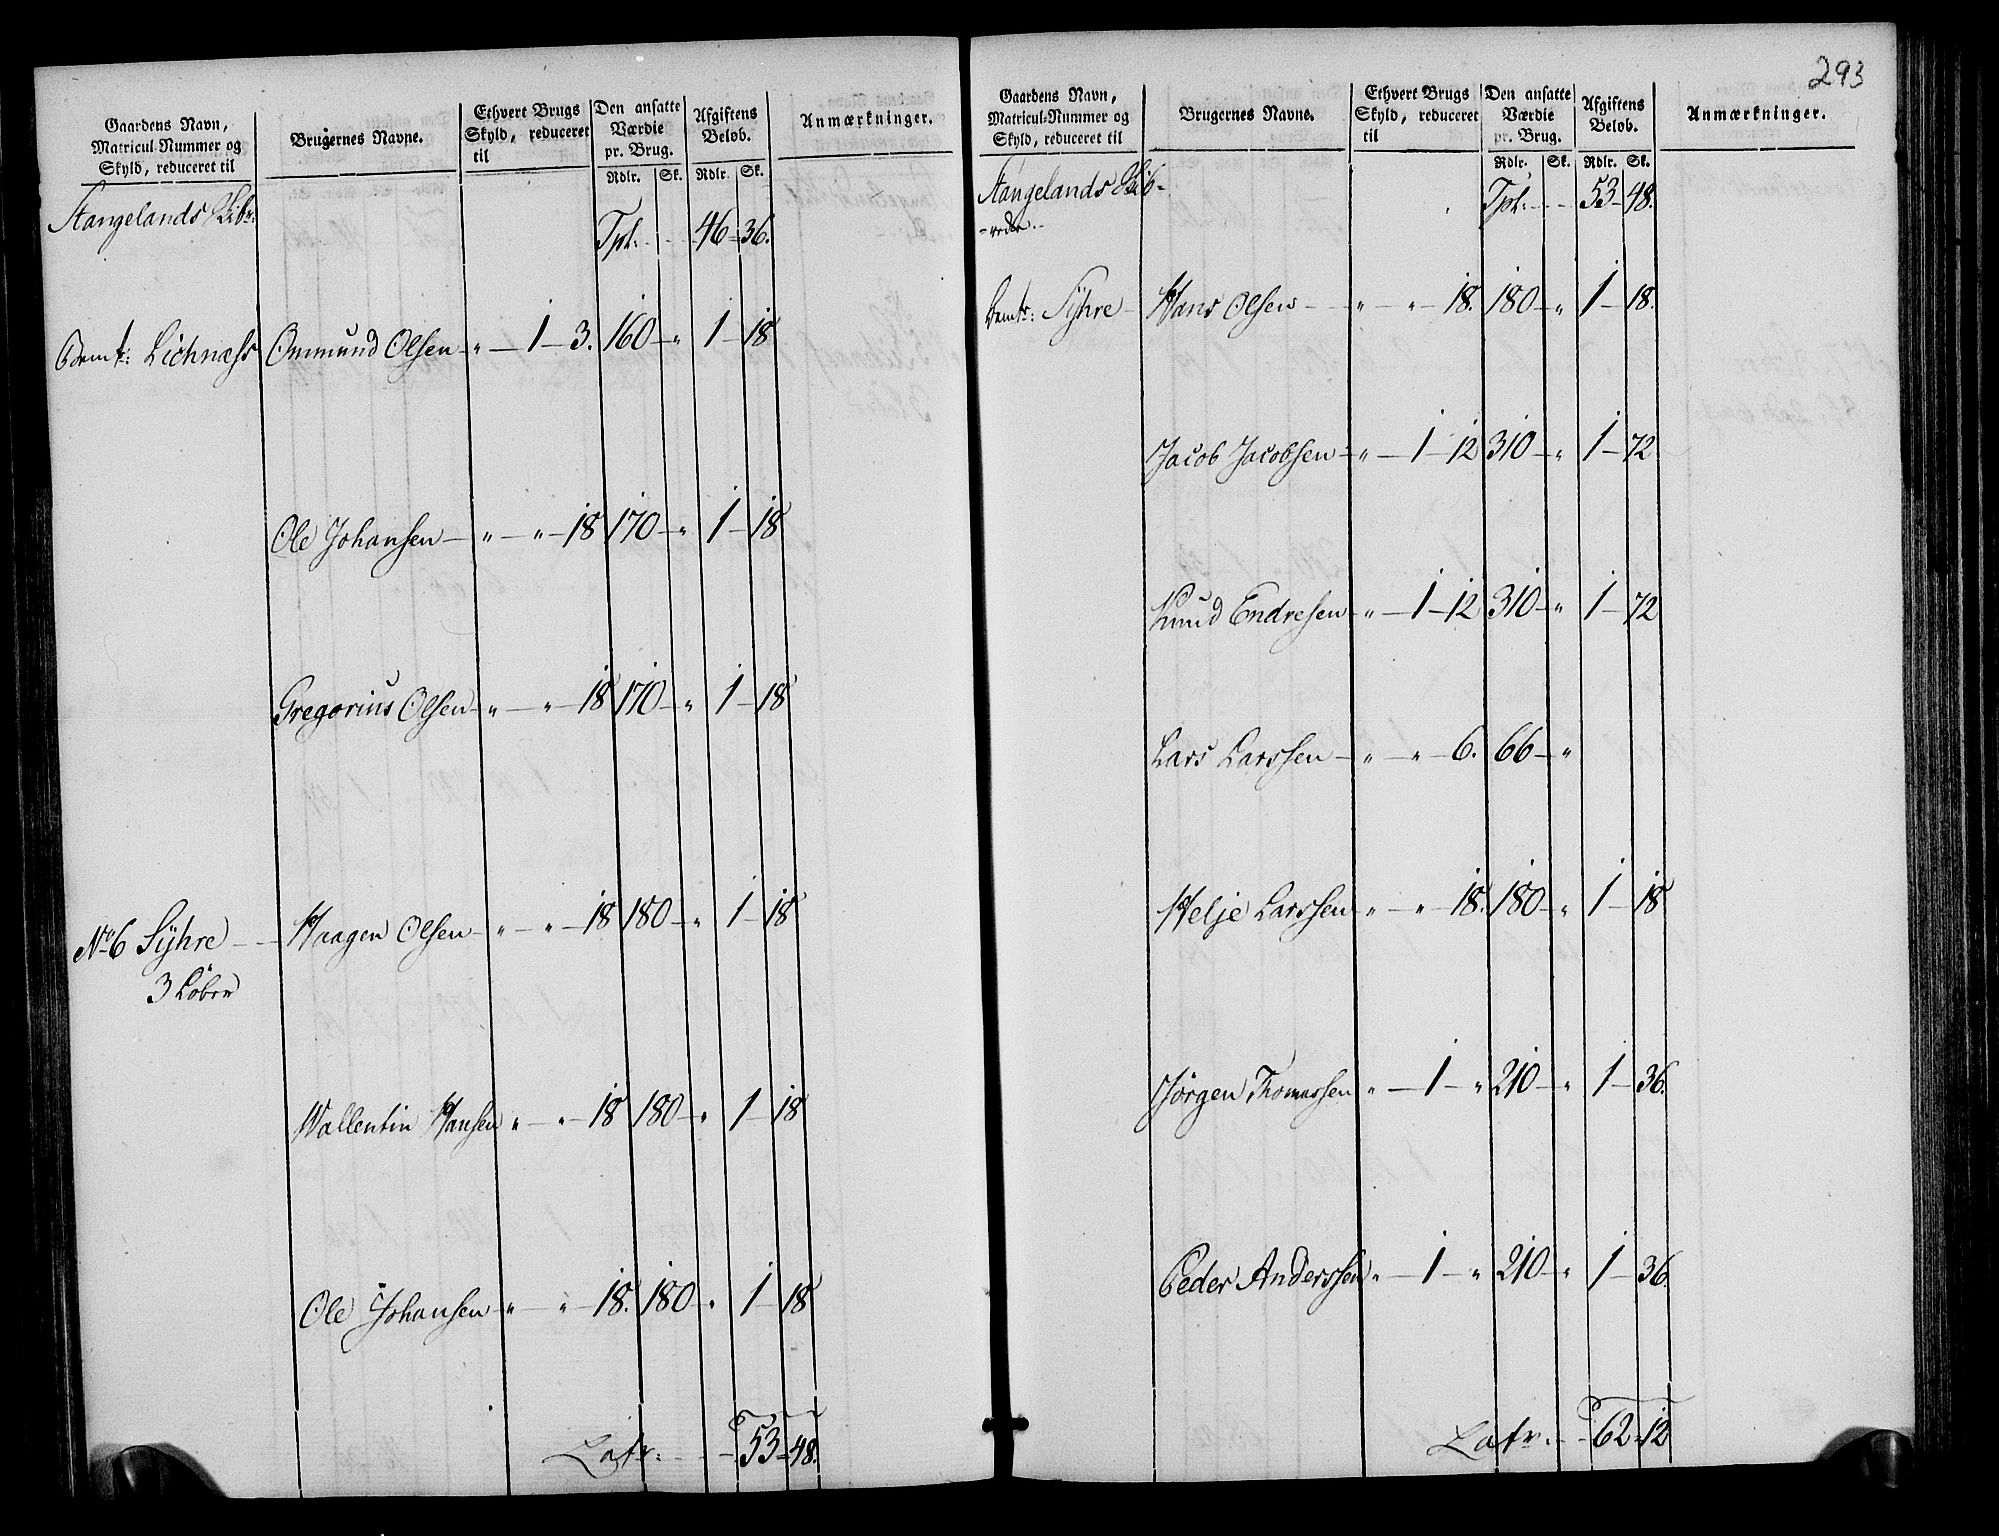 293
Gaardens Navn, Matricul-Nummer og Skyld, reduceret til | Brugernes Navne. | Ethvert Brugs Skyld, reduceret til | Den ansatte Værdie pr. Brug. Rdlr. Sk. | Afgiftens Beløb. Rdlr. Sk. | Anmærkninger.
Stangelands Skibr: Tpt: 46 - 36.
Bemt: Lichnæss Ommund Olsen - " - 1 - 3. 160 - " 1 - 18
Ole Johansen - " - " - 18 170 - " 1 - 18
Gregorius Olsen - " - " - 18 170 - " 1 - 18
No 6 Syhre - - Haagen Olsen - " - " - 18 180 - " 1 - 18
3 Løber
Wallentin Hansen " - " - 18 180 - " 1 - 18
Ole Johansen - " - " - 18. 180 " 1 - 18
Latr: 53 - 48.
Gaardens Navn, Matricul-Nummer og Skyld, reduceret til | Brugernes Navne. | Ethvert Brugs Skyld, reduceret til | Den ansatte Værdie pr. Brug. Rdlr. Sk. | Afgiftens Beløb. Rdlr. Sk. | Anmærkninger.
Stangelands Skib-
-rede. Tpt: 53 - 48.
Bemt: Syhre - Hans Olsen - " " - 18. 180 - " 1 - 18.
Jacob Jacobsen - " - 1 - 12 310 - " 1 - 72
Knud Endresen - " - 1 - 12 310 - " 1 - 72
Lars Larssen - " - " - 6. 66 - "
Helje Larssen - " - " - 18. 180 - " 1 - 18
Jørgen Thomassen " - 1 - " 210 - " 1 - 36.
Peder Anderssen " - 1 - " 210 - " 1 - 36.
Latr: 62 - 12